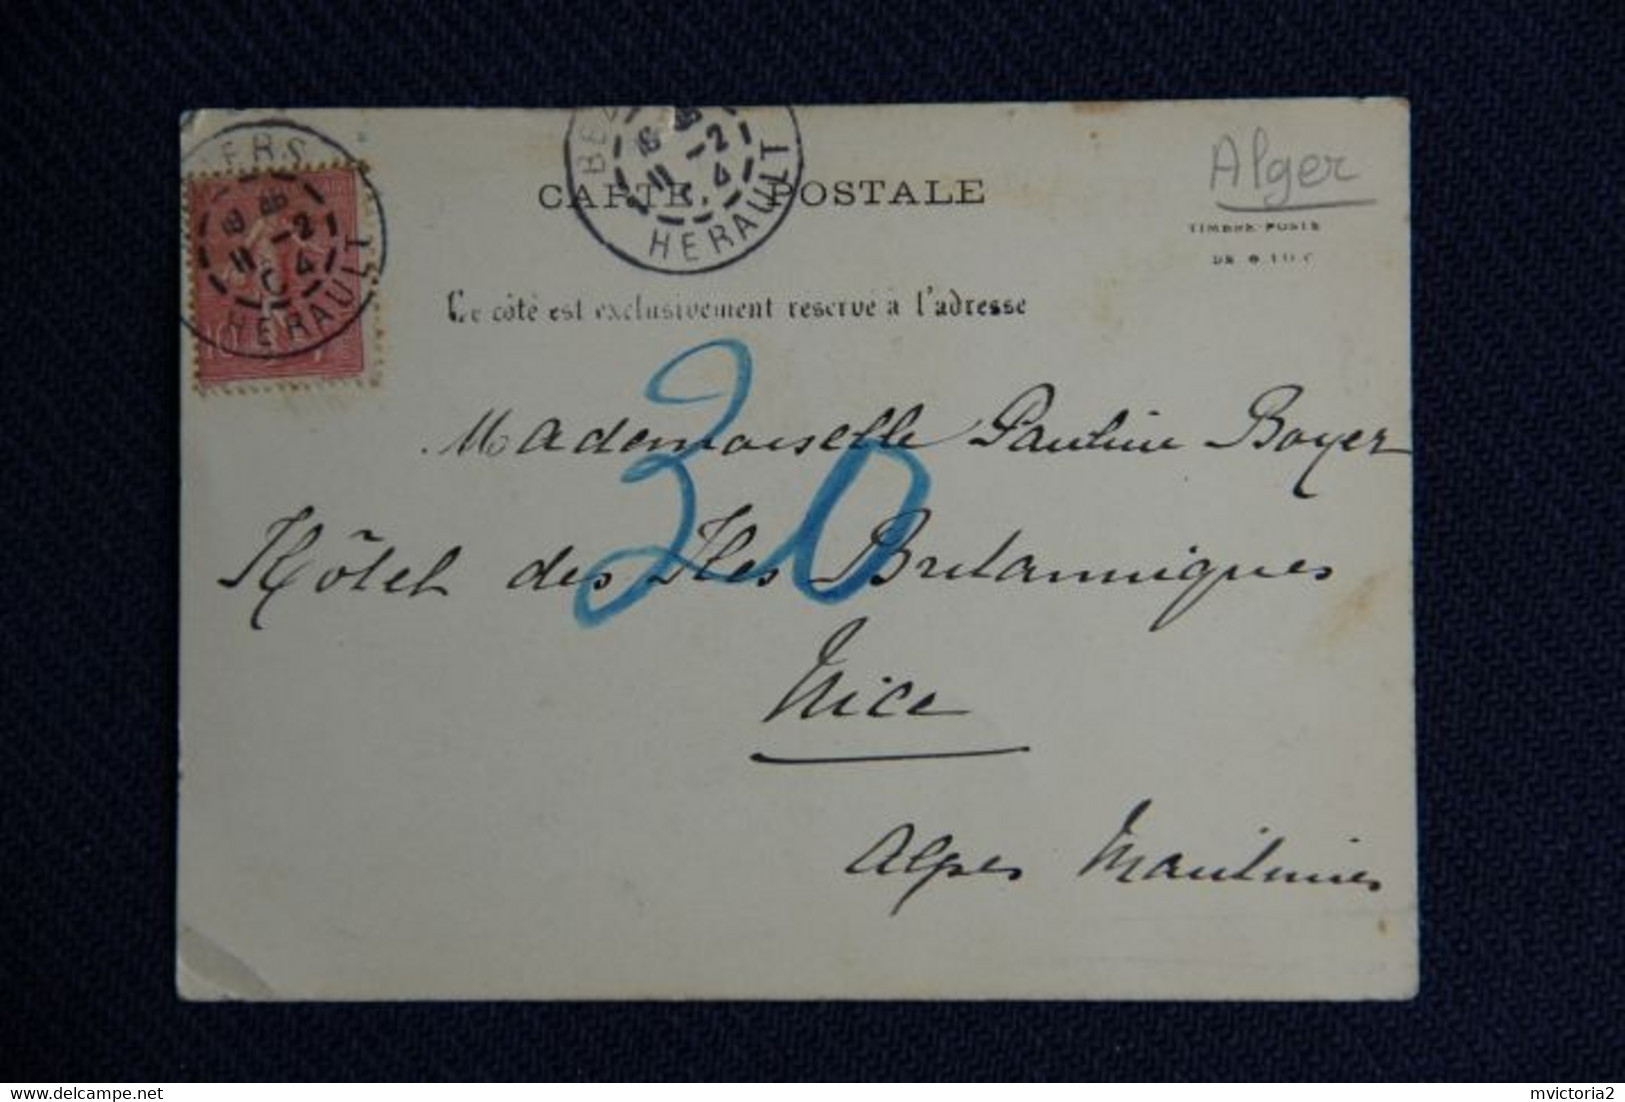 CARTE POSTALE
Alger
TIMBRE-POSTE
DE 0.10 C
Ce côté est exclusivement reservé à l'adresse
HERAULT
11 -2
04
HERAULT
11 -2
04
30
Mademoiselle Pauline Boyer
Hôtel des Iles Britanniques
Nice
Alpes Maritimes
mvictoria2